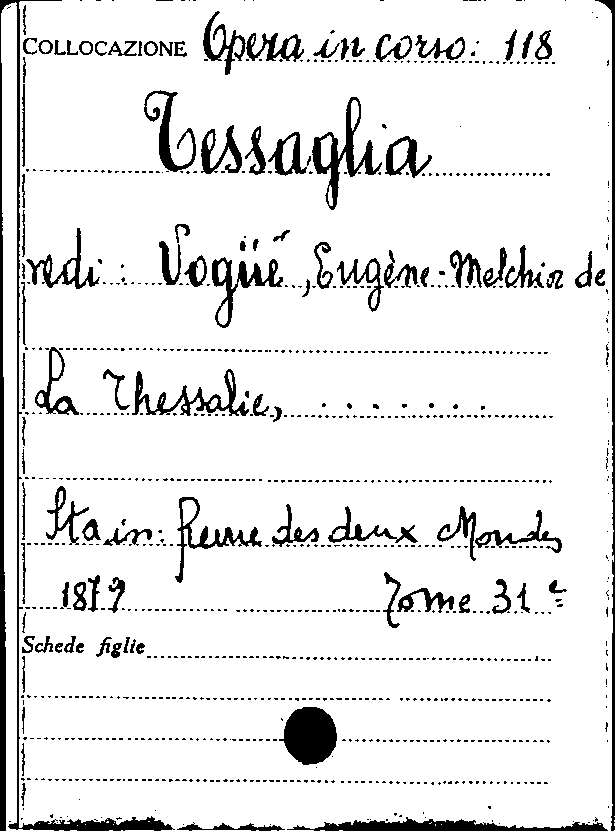 COLLOCAZIONE Opera in corso: 118
Tessaglia
vedi: Vogüé, Eugène-Melchior de
La Thessalie, . . . . . . .
Sta in: Revue des deux Mondes
1879 Tome 31e
Schede figlie